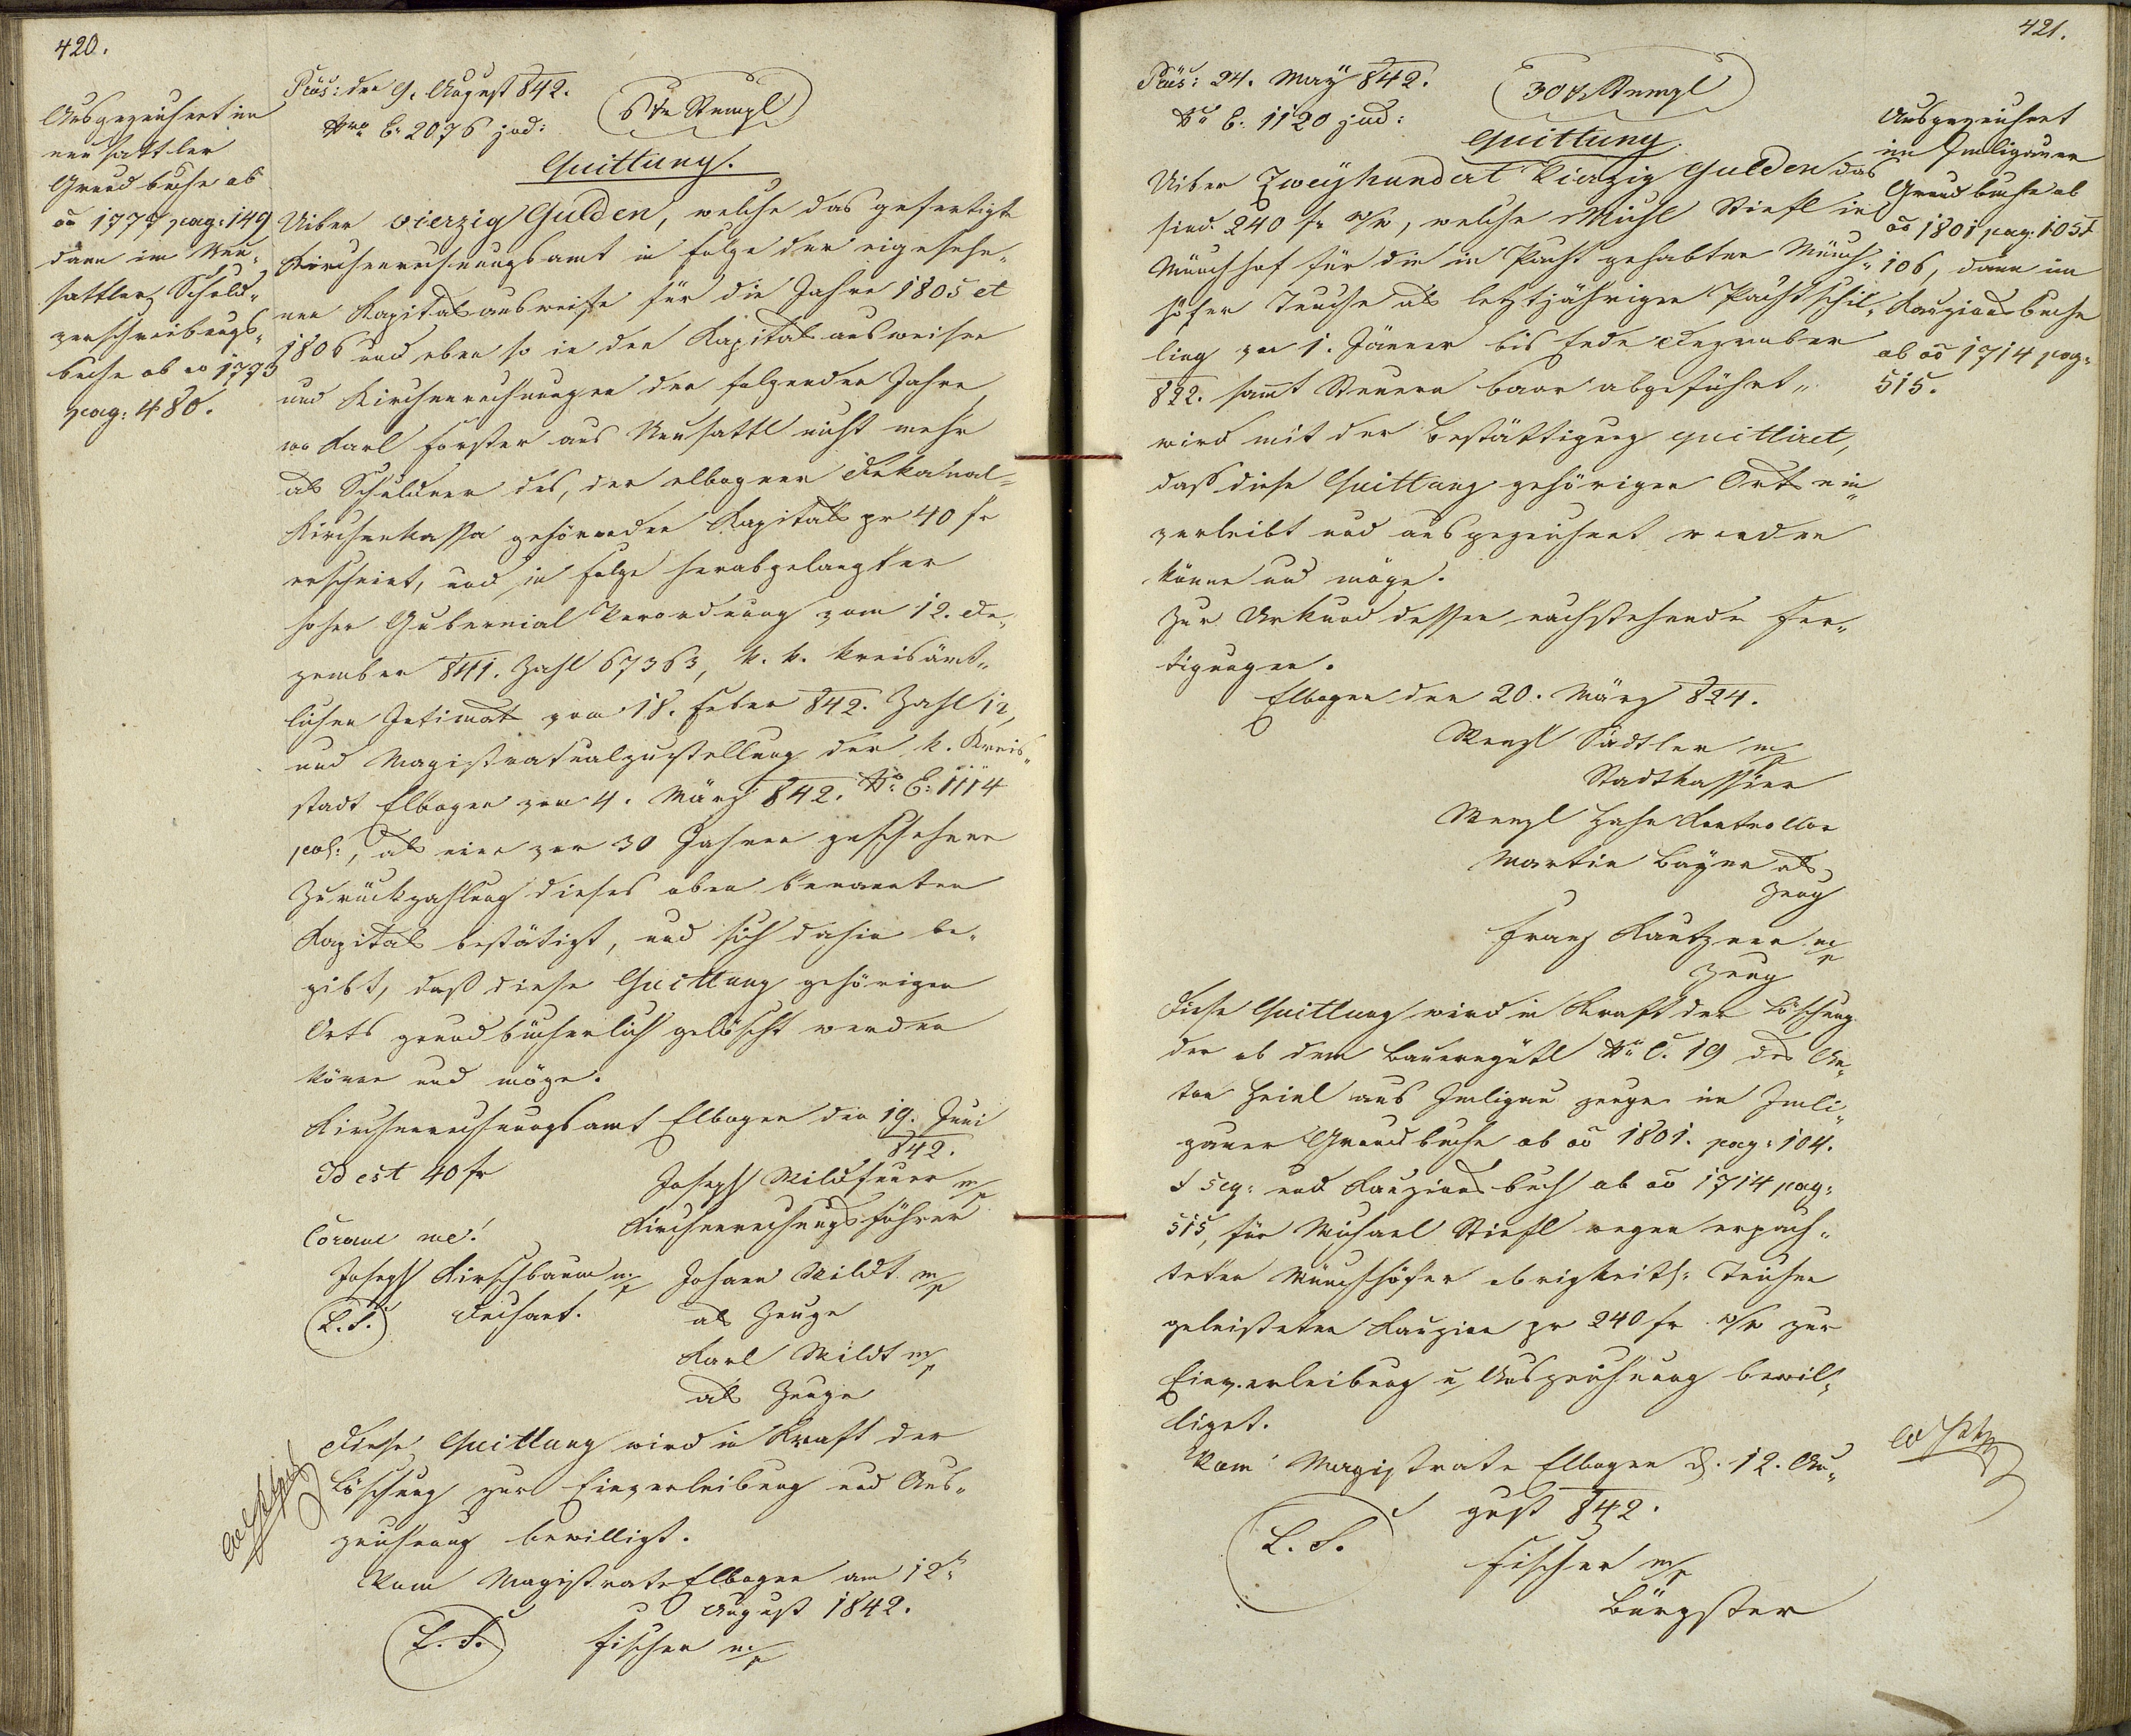 420.
Ausgezeichnet im
neu sattler
Grundbuche ab
ao 1777 pag: 149
dann im Neu„
sattler Schuld„
verschreibungs„
buche ab ao 1773
pag: 480.
Präs: den 9. August 842.
Nro E. 2076 jud:
6 Xr Stempl
Quittung.
Uiber vierzig Gulden, welche das gefertigte
Kirchenrechnungsamt in Folge der eigesehe„
nen Kapitalsausweise für die Jahre 1805 et
1806 und eben so in den Kapitalsausweisen
und Kirchenrechnungen der folgenden Jahre,
wo Karl Forster aus Neusattl nicht mehr
als Schuldner des, der elbogner Dekanal„
Kirchenkassa gehörenden Kapitals pr 40 fr
erscheint, und in Folge herabgelangter
hoher Gubernial Verordnung vom 12. De„
zember 841. Zahl 67363, k. k. kreisämt„
lichen Intimat vom 18. Feber 842. Zahl 12,
und Magistratualzustellung der k. Kreis„
stadt Elbogen vom 4. März 842. No E: 1114
pol:, als eine vor 30 Jahren geschehene
Zurückzahlung dieses oben benannten
Kapitals bestätigt, und sich dahin be„
gibt, daß diese Quittung gehörigen
Orts grundbücherlich gelöscht werden
könne und möge.
Kirchenrechnungsamt Elbogen den 19. Juni
842.
Id est 40 fr
Joseph Wildfeuer m/p
Kirchenrechnungsführer
Coram me!
Joseph Kirschbaum m/p
Johann Mildt m/p
L. S. Dechant.
als Zeuge
Karl Mildt m/p
als Zeuge
Diese Quittung wird in Kraft der
Löschung zur Einverleibung und Aus„
zeichnung bewilligt.
Vom Magistrate Elbogen am 12t
August 1842.
L. S. Fischer m/p
421.
Präs: 24. May 842.
No E. 1120 jud:
30 Xr Stempl
Quittung.
Uiber Zweyhundert Vierzig Gulden das
sind 240 fr W/W, welche Michl Stiefl in
Münchhof für die in Pacht gehabten Münch„
höfer Teuche als letztjährigen Pachtschil„
ling vom 1. Jänner bis Ende Dezember
822. samt Steuern baar abgeführt„
wird mit der Bestättigung quittiret,
daß diese Quittung gehörigen Orts ein„
verleibt und ausgezeichnet werden
könne und möge.
Zur Urkund dessen nachstehende Fer„
tigungen.
Elbogen den 20. März 824.
Wenzl Sadtler m/p
Stadtkassier
Wenzl Hahn Kontrollor
Martin Bayer als
Zeug
Franz Kautzner m/p
Zeug
Diese Quittung wird in Kraft der Löschung
der ab dem Bauerngütl No C. 19 des An„
ton Heinl aus Imligau zeuge im Imli„
gauer Grundbuche ab ao 1801. pag: 104.
et seq: und Kauzionsbuch ab ao 1714 pag:
515, für Michael Stiefl wegen erpach„
teten Münchhöfer obrigkeitl: Teichen
geleisteten Kauzion pr 240 fr W/W zur
Einverleibung u Auszeichnung bewil„
liget.
Vom Magistrate Elbogen d. 12. Au„
gust 842.
L. S.
Fischer m/p
Bürgster
Ausgezeichnet
im Imligauer
Grundbuche ab
ao 1801 pag: 105 et
106, dann im
Kauzionsbuche
ab ao 1714 pag:
515.